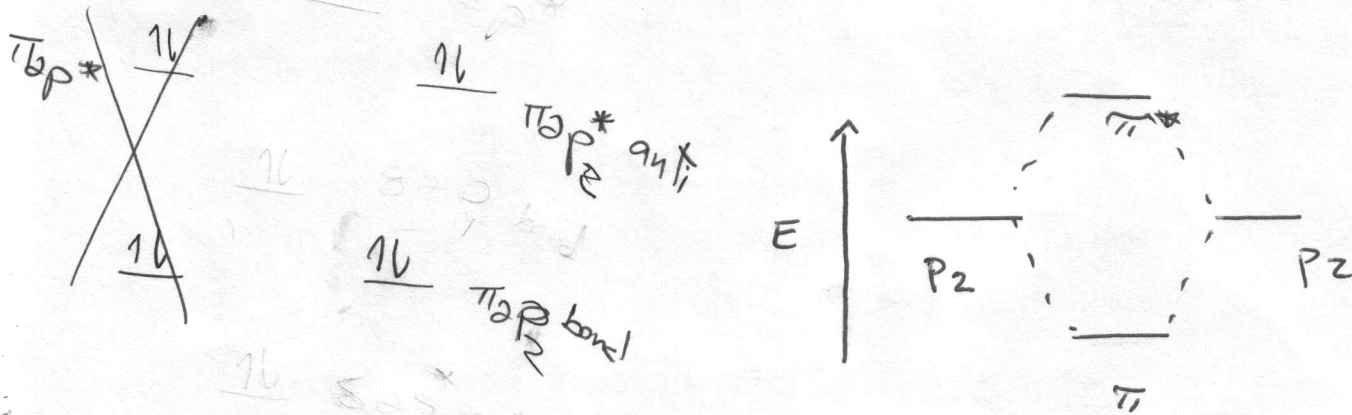 π2p*
1l
1l
1l
π2p* anti
z
1l
π2p bond
z
E
π*
Pz
Pz
π